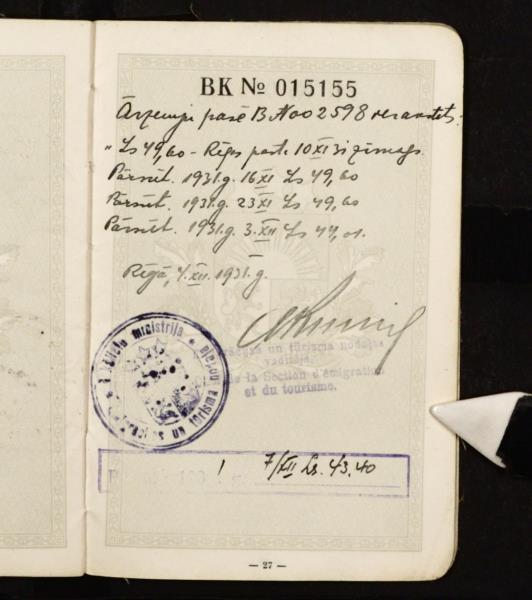 BK № 015155
Ārzemju pasē B.N002598 ierakstīts:
"Ls 49,60 - Rīgas past. 10 XI 31 zīmogs.
Pārsūt. 1931.g. 16 XI Ls 49,60
Pārsūt. 1931.g. 23 XI Ls 49,60
Pārsūt. 1931.g. 3. XII Ls 44,01.
Rīgā, 4. XII. 1931.g.
ministrija
un tūrisma nodaļas
vadītājs
de la Section d'émigration
et du tourisme.
7/XII Ls. 43.40
— 27 —